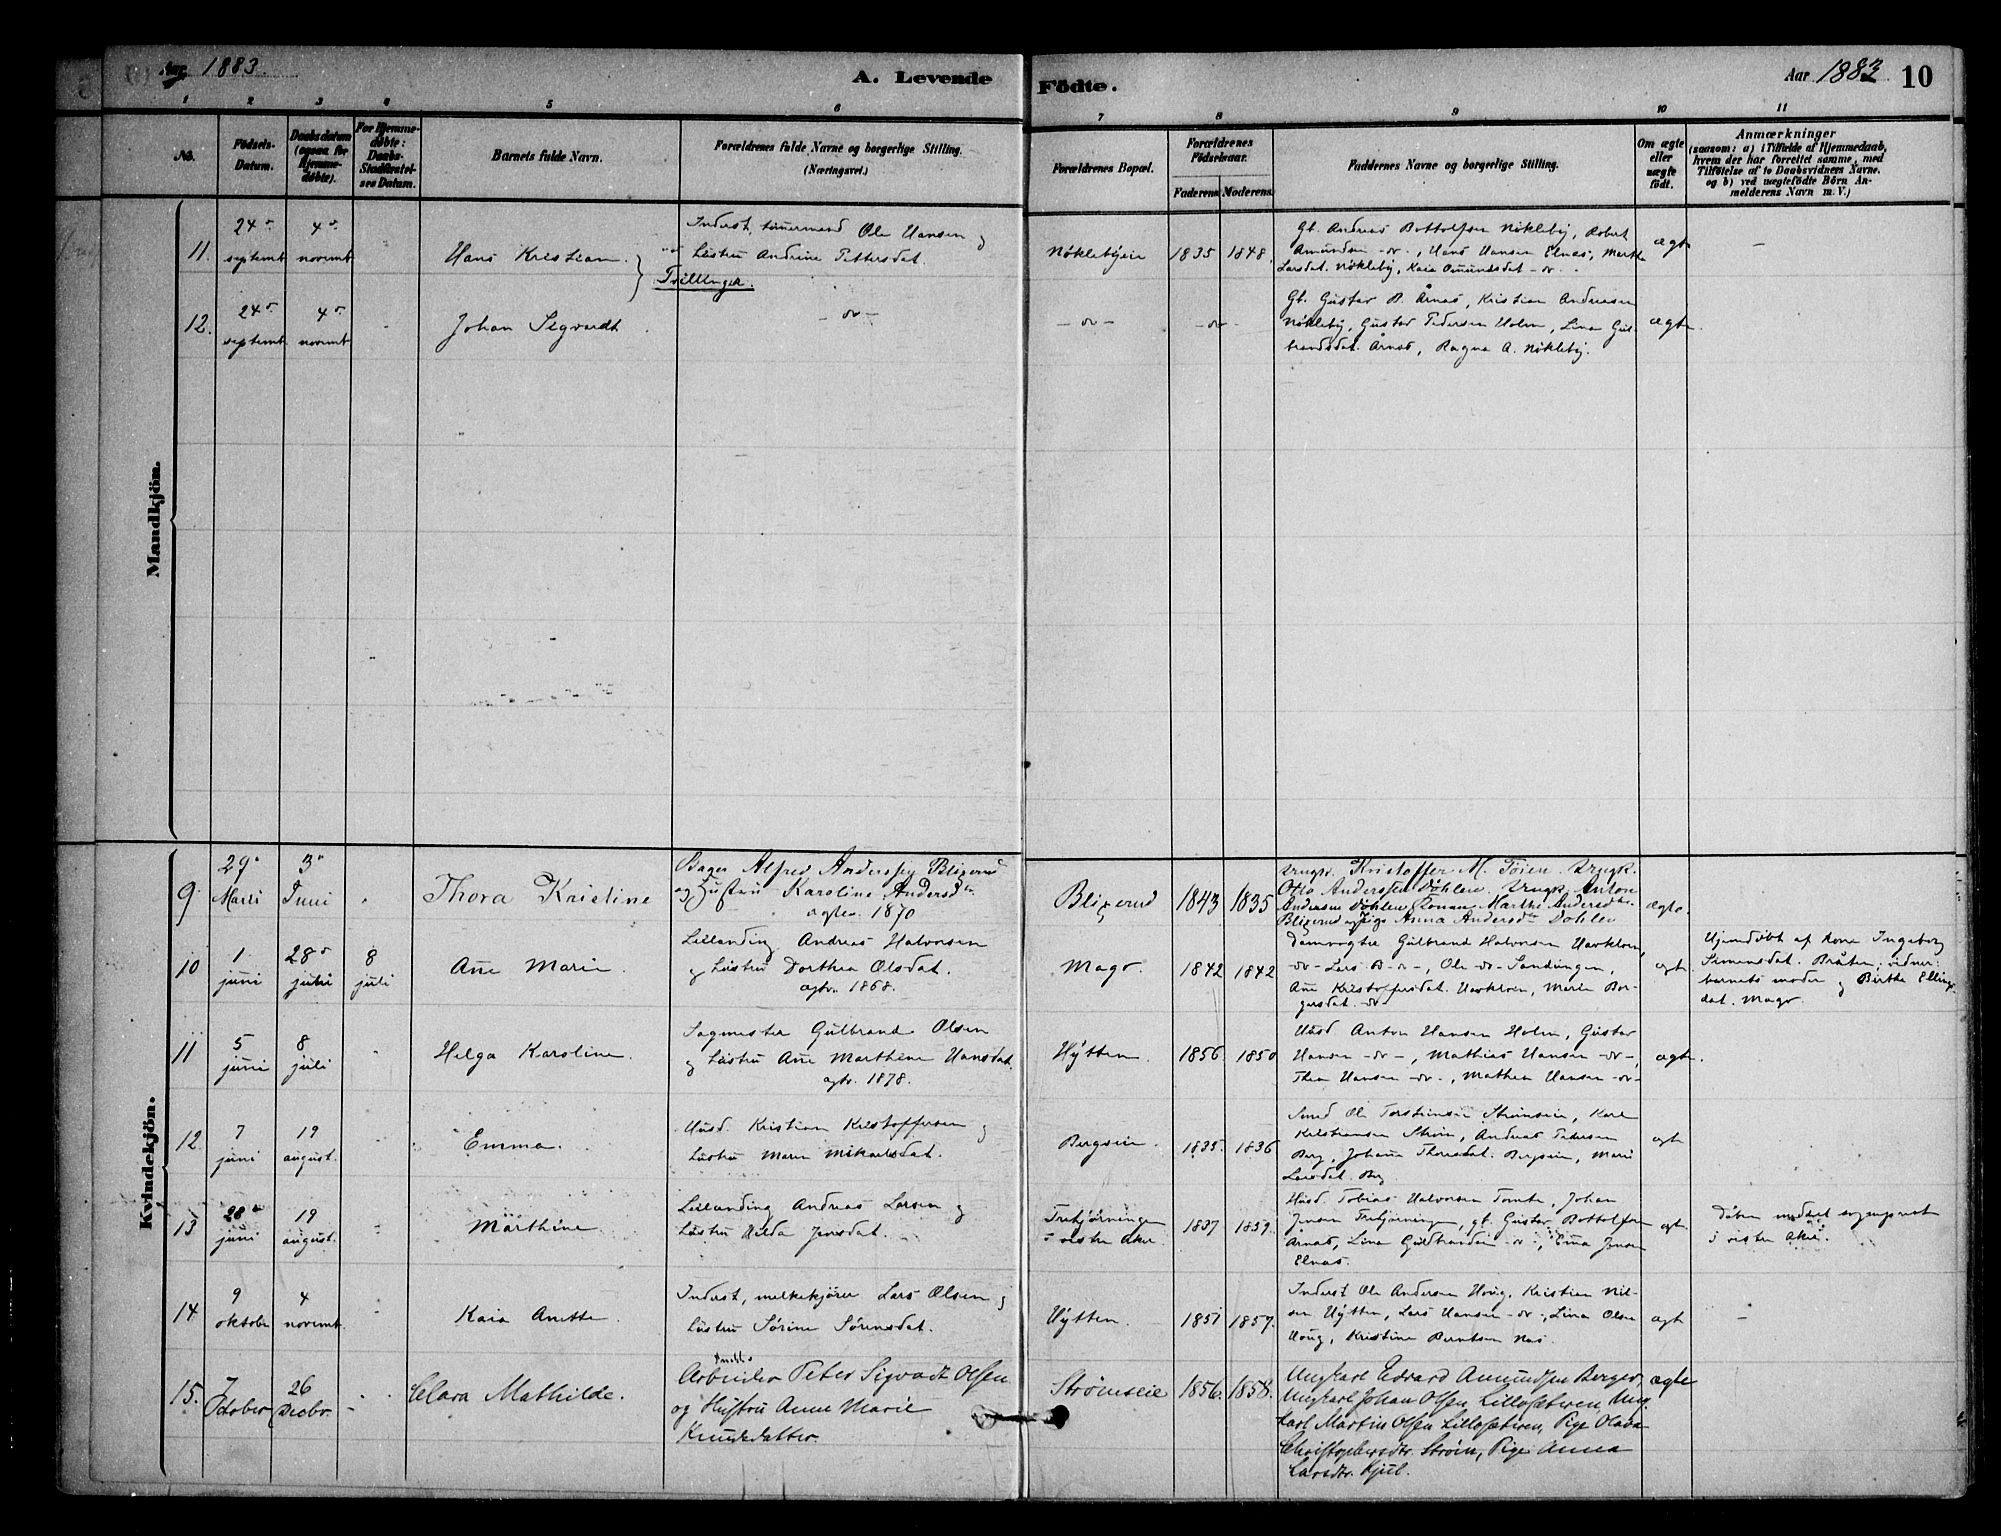 Aar 1883.
A. Levende
Födte.
Aar 1883
10
1 2 3 4 5 6 7 8 9 10 11
No.
Födsels-
Datum.
Daabsdatum
(ogsaa for
Hjemme-
døbte).
For Hjemme-
døbte:
Daabs-
Stadfæstel-
ses Datum.
Barnets fulde Navn.
Forældrenes fulde Navne og borgerlige Stilling.
(Næringsvei.)
Forældrenes Bopæl.
Forældrenes
Födselsaar.
Faderens. Moderens.
Faddernes Navne og borgerlige Stilling.
Om ægte
eller
uægte
födt.
Anmærkninger
(saasom: a) i Tilfælde af Hjemmedaab,
hvem der har forrettet samme, med
Tilföielse af to Daabsvidners Navne.
og b) ved uægtefödte Börn An-
melderens Navn m. V.)
Mandkjön.
11.
24
septembr
4
novembr
Hans Kristian.
Inderst, tömermand Ole Hansen og
Hustru Andrine Pettersdat.
Tvillinger.
Nöklebyeie
1835
1848.
Gb. Andreas Bottolfsen Nökleby, Robert
Amundsen -do-, Hans Hansen Elnas, Marthe
Larsdat. Nökleby, Kaia Omundsdat -do-.
ægte
-
12.
24
septembr
4
novembr
Johan Sigvardt
-do-
-do-
-do-
Gb. Gustav B. Årnas, Kristian Andreasen
Nökleby, Gustav Pedersen Holm, Lina Gul-
brandsdat. Årnas, Ragna A. Nökleby.
ægte
Kvindekjön.
9
29
Marts
3
Juni
Thora Kristine
Bager Alfred Andersen Blixerud
og Hustru Karoline Andersdtr
ægtev. 1870
Blixerud
1843
1835
Ungk. Kristoffer M. Töien. Ungk.
Otto Andersen Döhlen. Ungk. Anton
Andersen Döhlen, Konen Marthe Andersdtr.
Blixerud og Pige Anna Andersdtr Döhlen
ægte.
10
1
juni
28
juli
8
juli
Ane Marie.
Leilending Andreas Halvorsen
og Hustru Dorthea Olsdat.
ægtv. 1868.
Mago.
1842
1842
Damvogter Gulbrand Halvorsen
-do- Lars B -do-, Ole -do- Sandungen,
Ane Kristoffersdat. Maria Bor-
gersdat. -do-
ægt
Hjemdöbt af kone Ingeborg
Simensdat. Bråten; vidner:
barnets moder og Birthe Ellings-
dat. Mago.
11
5
juni
8
juli
Helga Karoline.
Sagmester Gulbrand Olsen
og Hustru Ane Marthine Hansdat.
ægtv. 1878.
Hytten.
1856
1850
Husd Anton Hansen Holm, Gustav
Hansen -do-, Mathias Hansen -do-,
Thea Hansen -do-, Mathea Hansen -do-
ægte
12.
7
juni
19
august.
Emma.
Husd. Kristian Kristoffersen og
Hustru Maren Mikaelsdat.
Bergseie.
1835.
1836
Smed Ole Torstensen Strömseie, Karl
Kristiansen Ström, Andreas Pedersen
Berg, Johanne Thoresdat. Bergseie, Mari
Larsdat. Berg
ægt
13
28
juni
19
august.
Marthine
Leilending Andreas Larsen og
Hustru Hilda Jensdat.
Trehjörningen
i vestre Aker
1837
1859.
Husd. Tobias Halvorsen Tomte, Johan
Jensen Trehjörningen, gb. Gustav Bottolfsen
Årnas, Lina Guldbrandsen -do-, Ema Jensen
Elnas.
ægt.
Dåben meddelt sogneprest
i vestre Aker.
14
9
oktober
4
novembr.
Kaia Anette
Inderst, melkekjörer Lars Olsen og
Hustru Sörine Sörensdat.
Hytten.
1851
1857.
Inderst Ole Andersen Houg, Kristian Nil-
sen Hytten, Lars Hansen -do-, Lina Olsen
Houg, Kristine Berntsen Nas.
ægt
-
15.
7
October
26
Decbr.
Clara Mathilde.
Arbeider Peter Sigvart Olsen
og Hustru Anne Marie
Knudsdatter.
Strömseie
1856.
1858.
Ungkarl Edvard Amundsen Berger,
Ungkarl Johan Olsen Lillosæteren, Ung-
karl Martin Olsen Lillosæteren, Pige Olava
Christophersdtr. Ström, Pige Anna
Larsdtr. Kjul.
ægte